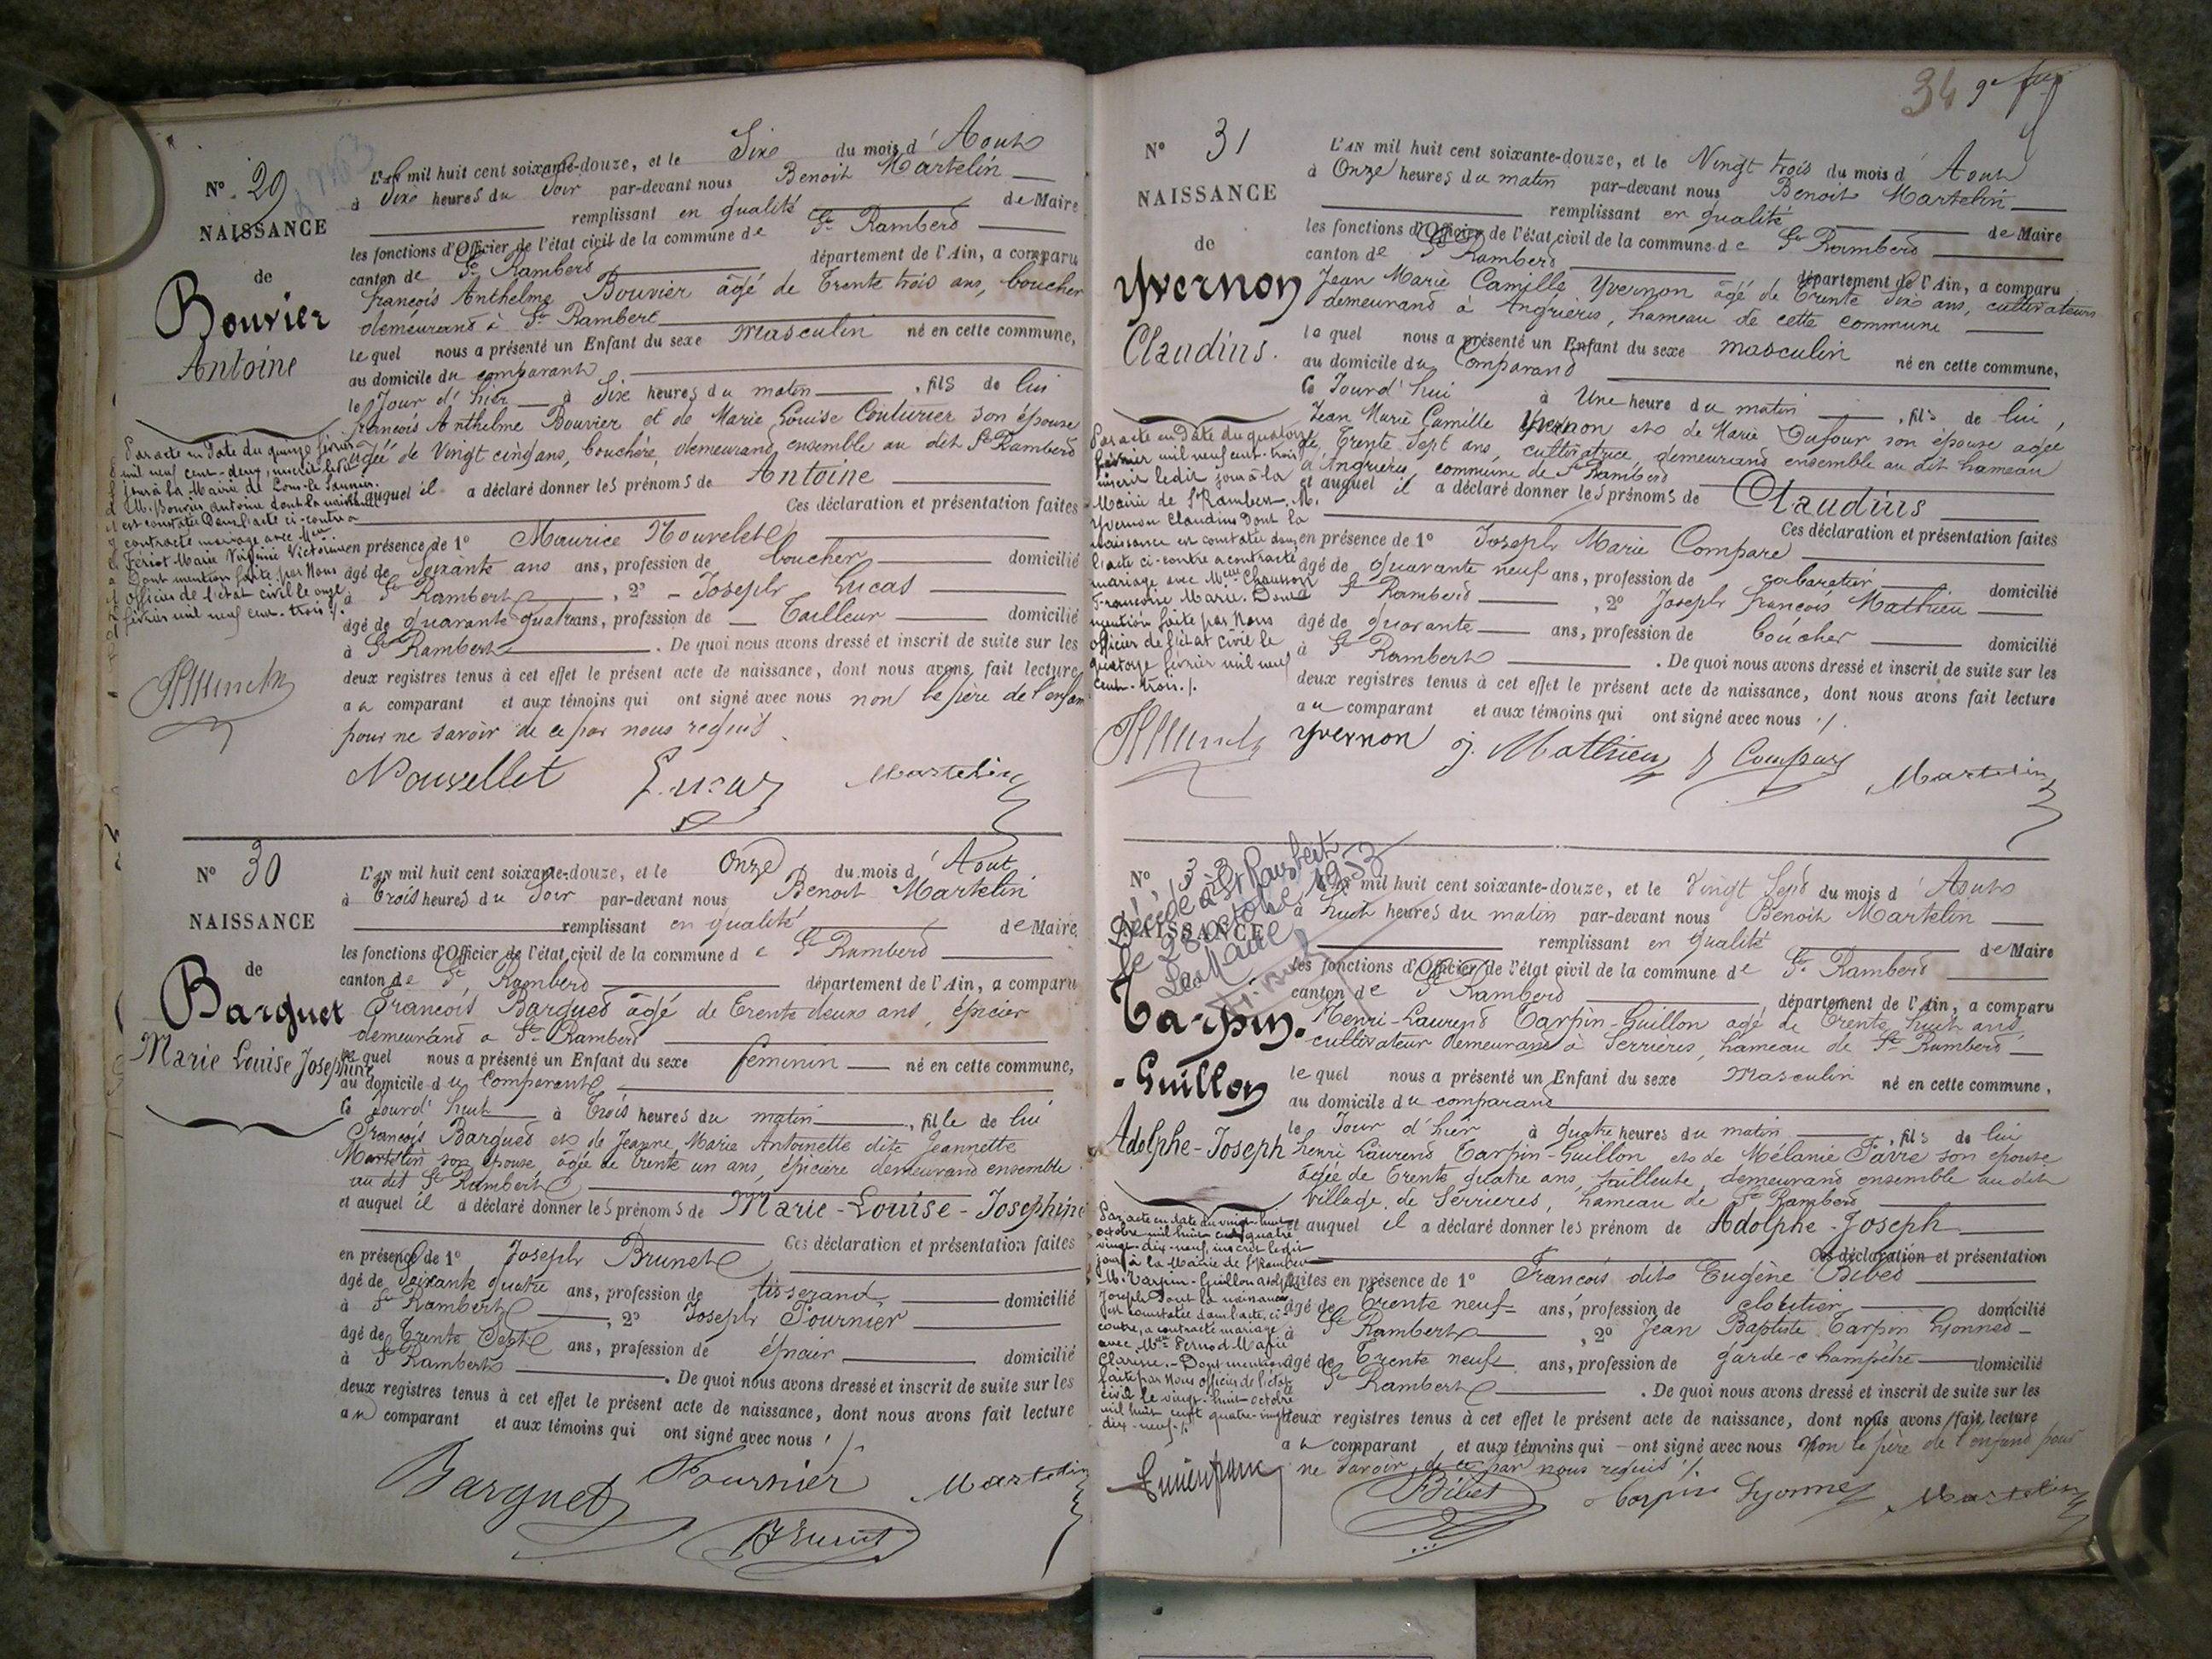 N° 29
NAISSANCE
de
Bouvier
Antoine
L'AN mil huit cent soixante-douze, et le Six du mois d'Aout
à Six heures du Soir par-devant nous Benoit Martelin
remplissant en qualité de Maire
les fonctions d'Officier de l'état civil de la commune de St Rambert
canton de St Rambert département de l'Ain, a comparu
françois Anthelme Bouvier âgé de Trente trois ans, boucher
demeurand à St Rambert
le quel nous a présenté un Enfant du sexe Masculin né en cette commune,
au domicile du comparant
le Jour d'hier à Six heures du matin, fils de lui
françois Anthelme Bouvier et de Marie Louise Couturier son épouse
agée de Vingt cinq ans, bouchère, demeurand ensemble au dit St Rambert
et auquel il a déclaré donner les prénoms de Antoine
Ces déclaration et présentation faites
en présence de 1° Maurice Nouvelet
âgé de Soixante ans ans, profession de boucher domicilié
à St Rambert, 2° Joseph Lucas
âgé de quarante quatre ans, profession de Tailleur domicilié
à St Rambert. De quoi nous avons dressé et inscrit de suite sur les
deux registres tenus à cet effet le présent acte de naissance, dont nous avons fait lecture
au comparant et aux témoins qui ont signé avec nous non le père de l'enfan
pour ne savoir de ce par nous requis
Nouvellet Lucas Martelin
Par acte en date du quinze février
mil neuf cent-deux, inscrit ledit
jour à la Mairie de Lons-le-Saunier
M. Bouvier Antoine dont la naissance
est constatée dans l'acte ci-contre a
contracté mariage avec Melle
Fériot Marie Virginie Victorine
Dont mention faite par Nous
officier de l'état civil le onze
février mil neuf cent-trois
N° 30
NAISSANCE
de
Barguet
Marie Louise Josephine
L'AN mil huit cent soixante-douze, et le Onze du mois d'Aout
à trois heures du Soir par-devant nous Benoit Martelin
remplissant en qualité de Maire
les fonctions d'Officier de l'état civil de la commune de St Rambert
canton de St Rambert département de l'Ain, a comparu
François Barguet âgé de Trente deux ans, épicier
demeurand a St Rambert
le quel nous a présenté un Enfant du sexe feminin né en cette commune,
au domicile du Comparant
ce Jourd'hui à trois heures du matin, fille de lui
François Barguet et de Jeanne Marie Antoinette dite Jeannette
Martelin son épouse, âgée de trente un ans, épicière demeurand ensemble
au dit St Rambert
et auquel il a déclaré donner les prénoms de Marie-Louise-Josephine
Ces déclaration et présentation faites
en présence de 1° Joseph Brunet
âgé de Soixante quatre ans, profession de tisserand domicilié
à St Rambert, 2° Joseph Fournier
âgé de Trente Sept ans, profession de épicier domicilié
à St Rambert. De quoi nous avons dressé et inscrit de suite sur les
deux registres tenus à cet effet le présent acte de naissance, dont nous avons fait lecture
au comparant et aux témoins qui ont signé avec nous
Barguet Fournier Martelin
Brunet
34
N° 31
NAISSANCE
de
Yvernon
Claudius.
L'AN mil huit cent soixante-douze, et le Vingt trois du mois d'Aout
à Onze heures du matin par-devant nous Benoit Martelin
remplissant en qualité de Maire
les fonctions d'Officier de l'état civil de la commune de St Rambert
canton de St Rambert département de l'Ain, a comparu
Jean Marie Camille Yvernon âgé de Trente Six ans, cultivateur
demeurand à Angrières, hameau de cette commune
le quel nous a présenté un Enfant du sexe masculin né en cette commune,
au domicile du Comparand
ce Jourd'hui à Une heure du matin, fils de lui,
Jean Marie Camille Yvernon et de Marie Dufour son épouse agée
de Trente Sept ans, cultivatrice, demeurand ensemble au dit hameau
d'Angrières, commune de St Rambert
et auquel il a déclaré donner les prénoms de Claudius
Ces déclaration et présentation faites
en présence de 1° Joseph Marie Compare
âgé de quarante neuf ans, profession de cabaretier domicilié
St Rambert, 2° Joseph françois Mathieu
âgé de quarante ans, profession de boucher domicilié
à St Rambert. De quoi nous avons dressé et inscrit de suite sur les
deux registres tenus à cet effet le présent acte de naissance, dont nous avons fait lecture
au comparant et aux témoins qui ont signé avec nous
Yvernon j. Mathieu Martelin
Par acte en date du quatorze
février mil neuf cent-trois
inscrit ledit jour à la
Mairie de St Rambert, M.
Yvernon Claudius Dont la
naissance est constatée dans
l'acte ci-contre a contracté
mariage avec Melle Chausson
Françoise Marie. Dont
mention faite par Nous
officier de l'état civil le
quatorze février mil neuf
cent-trois.
N° 32
NAISSANCE
Décédé à St Rambert
le 28 octobre 1953
Le Maire
Tarpin-
-Guillon
Adolphe-Joseph
L'AN mil huit cent soixante-douze, et le Vingt Sept du mois d'Aout
à huit heures du matin par-devant nous Benoit Martelin
remplissant en qualité de Maire
les fonctions d'Officier de l'état civil de la commune de St Rambert
canton de St Rambert département de l'Ain, a comparu
Henri-Laurend Tarpin-Guillon agé de Trente huit ans,
cultivateur demeurand à Serrières, hameau de St Rambert
le quel nous a présenté un Enfant du sexe Masculin né en cette commune,
au domicile du comparand
le Jour d'hier à quatre heures du matin, fils de lui
henri Laurend Tarpin-Guillon et de Mélanie Favre son épouse
agée de Trente quatre ans, tailleuse, demeurand ensemble au dit
village de Serrieres, hameau de St Rambert
et auquel il a déclaré donner les prénom de Adolphe-Joseph
Ces déclaration et présentation
faites en présence de 1° François dit Eugène Bibet
âgé de Trente neuf ans, profession de cloutier domicilié
à St Rambert, 2° Jean Baptiste Tarpin Lyonnet
âgé de Trente neuf ans, profession de garde-champêtre domicilié
St Rambert. De quoi nous avons dressé et inscrit de suite sur les
deux registres tenus à cet effet le présent acte de naissance, dont nous avons fait lecture
au comparant et aux témoins qui ont signé avec nous Non le père de l'enfand pour
ne savoir de ce par nous requis
Bibet Tarpin Lyonnet Martelin
Par acte en date du vingt-huit
octobre mil huit cent quatre
vingt-dix-neuf, inscrit ledit
jour à la Mairie de St Rambert
M. Tarpin-Guillon Adolphe
Joseph Dont la naissance
est constatée dans l'acte ci-
contre, a contracté mariage
avec Melle Pernod Marie
Clarisse. Dont mention
faite par Nous officier de l'état
civil le vingt-huit octobre
mil huit cent quatre-vingt
dix-neuf.